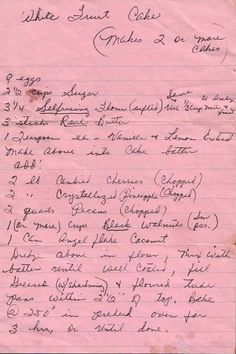 White Fruit Cake
(Makes 2 or more
Cakes)
9 eggs
2 1/2 cups Sugar
Save to dredge
3 1/4 Selfrising Flour (sifted) Use to dredge nuts & fruit
3 sticks Real Butter
1 Teaspoon ea - Vanilla & Lemon Extract
Make above into Cake batter
add:
2 lb Candied Cherries (Chopped)
2 " Crystallized Pineapple (Chopped)
2 quarts Pecans (Chopped)
1 (or more) Cups Black Walnuts (Sm pcs.)
1 Can Angel Flake Coconut
Dredge above in flour, mix with
batter until well coated, fill
Greased (w/shortening) & floured tube
pans within 2 1/2" of top. Bake
@ 250° in preheated oven for
3 hrs, or until done.